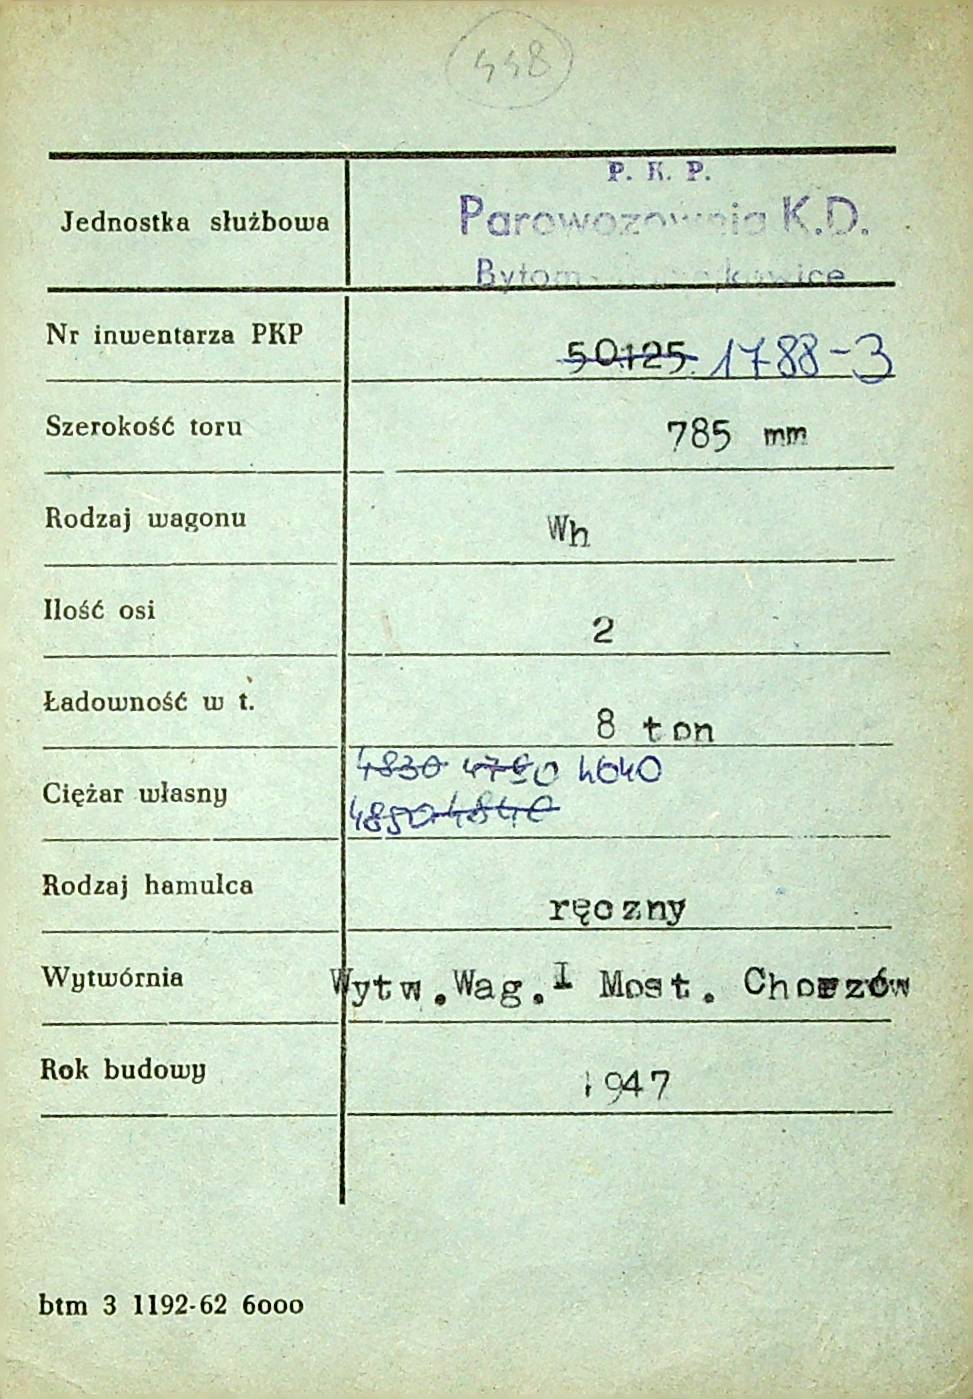 448
P. K. P.
Jednostka służbowa Parowozownia K.D.
Bytom
Nr inwentarza PKP 50125 1788-3
Szerokość toru 785 mm
Rodzaj wagonu Wh
Ilość osi 2
Ładowność w t. 8 ton
4830 4790 4640
Ciężar własny
4850 4840
Rodzaj hamulca ręczny
Wytwórnia Wytw.Wag.I Most. Chorzów
Rok budowy 1947
btm 3 1192-62 6000